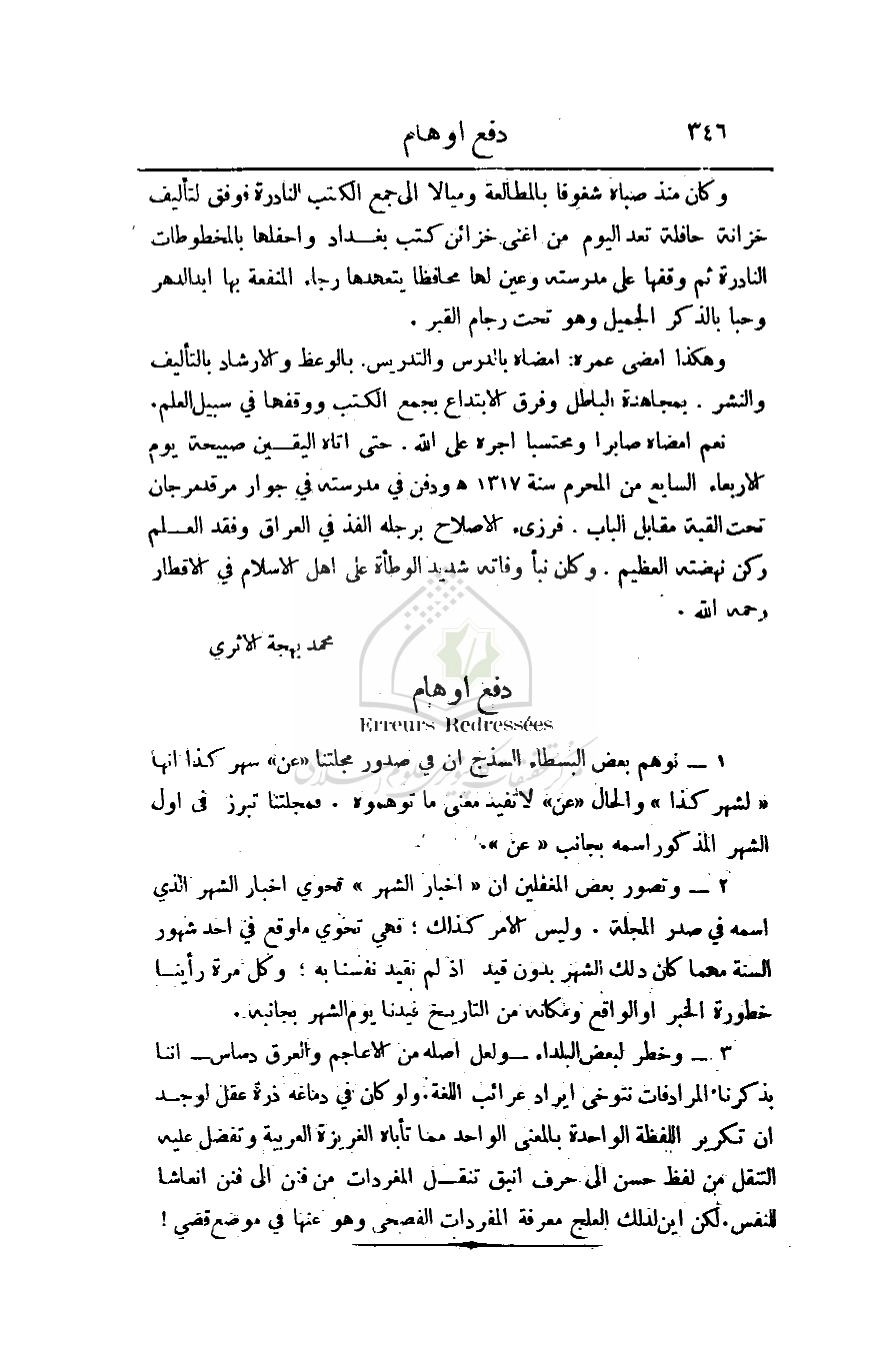 ٣٤٦ دفع اوهام
وكان منذ صباه شغوفا بالمطالعة وميالا الى جمع الكتب النادرة فوفق لتأليف
خزانة حافلة تعد اليوم من اغنى خزائن كتب بغداد واحفلها بالمخطوطات
النادرة ثم وقفها على مدرسته وعين لها محافظا يتعهدها رجاء المنفعة بها ابدالدهر
وحبا بالذكر الجميل وهو تحت رجام القبر .
وهكذا امضى عمره: امضاه بالدرس والتدريس. بالوعظ والارشاد بالتأليف
والنشر . بمجاهدة الباطل وفرق الابتداع بجمع الكتب ووقفها في سبيل العلم.
نعم امضاه صابرا ومحتسبا اجره على الله . حتى اتاه اليقين صبيحة يوم
الاربعاء السابع من المحرم سنة ١٣١٧ ه ودفن في مدرسته في جوار مرقدمرجان
تحت القبة مقابل الباب . فرزىء الاصلاح برجله الفذ في العراق وفقد العلم
ركن نهضته العظيم . وكان نبأ وفاته شديد الوطأة على اهل الاسلام في الاقطار
رحمه الله .
محمد بهجة الاثري
دفع اوهام
Erreurs Redressées
١ — توهم بعض البسطاء السذج ان في صدور مجلتنا «عن» سهر كذا انها
« لشهر كذا » والحال «عن» لاتفيد معنى ما توهموه . فمجلتنا تبرز في اول
الشهر المذكور اسمه بجانب « عن ».
٢ — وتصور بعض المغفلين ان « اخبار الشهر » تحوي اخبار الشهر الذي
اسمه في صدر المجلة . وليس الامر كذلك ؛ فهي تحوي ماوقع في احد شهور
السنة مهما كان ذلك الشهر بدون قيد اذ لم نقيد نفسنا به ؛ وكل مرة رأينا
خطورة الخبر او الواقع ومكانه من التاريخ قيدنا يوم الشهر بجانبه.
٣ — وخطر لبعض البلداء —ولعل اصله من الاعاجم والعرق دساس— اننا
بذكرنا المرادفات نتوخى ايراد غرائب اللغة. ولو كان في دماغه ذرة عقل لوجد
ان تكرير اللفظة الواحدة بالمعنى الواحد مما تأباه الغريزة العربية وتفضل عليه
التنقل من لفظ حسن الى حرف انيق تنقل المغردات من فنن الى فنن انعاشا
للنفس. لكن اين لذلك العلج معرفة المفردات الفصحى وهو عنها في موضع قصي !
مركز تحقيقات كامپيوتري علوم اسلامي